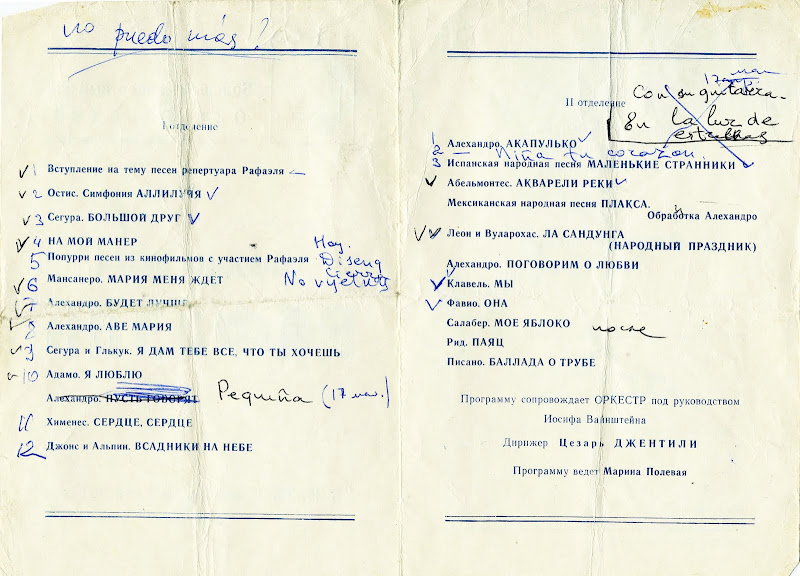 no puedo más?
I отделение
1 Вступление на тему песен репертуара Рафаэля
2 Остис. Симфония АЛЛИЛУЙЯ
3 Сегура. БОЛЬШОЙ ДРУГ
4 НА МОЙ МАНЕР
Hay.
5 Попурри песен из кинофильмов с участием Рафаэля
6 Мансанеро. МАРИЯ МЕНЯ ЖДЕТ
No
7 Алехандро. БУДЕТ ЛУЧШЕ
Алехандро. АВЕ МАРИЯ
9 Сегура и Глькук. Я ДАМ ТЕБЕ ВСЕ, ЧТО ТЫ ХОЧЕШЬ
10 Адамо. Я ЛЮБЛЮ
Алехандро. ПУСТЬ ГОВОРЯТ Pequiña (17 мая.)
11 Хименес. СЕРДЦЕ, СЕРДЦЕ
12 Джонс и Альпин. ВСАДНИКИ НА НЕБЕ
17 мая
II отделение
Con su guitarra.
En la luz de estrellas
1 Алехандро. АКАПУЛЬКО
2 — Niña tu corazon.
3 Испанская народная песня МАЛЕНЬКИЕ СТРАННИКИ
Абельмонтес. АКВАРЕЛИ РЕКИ
Мексиканская народная песня ПЛАКСА.
Обработка Алехандро
Леон и Вуларохас. ЛА САНДУНГА
(НАРОДНЫЙ ПРАЗДНИК)
Алехандро. ПОГОВОРИМ О ЛЮБВИ
Клавель. МЫ
Фавио. ОНА
Салабер. МОЕ ЯБЛОКО после
Рид. ПАЯЦ
Писано. БАЛЛАДА О ТРУБЕ
Программу сопровождает ОРКЕСТР под руководством
Иосифа Вайнштейна
Дирижер Цезарь ДЖЕНТИЛИ
Программу ведет Марина Полевая